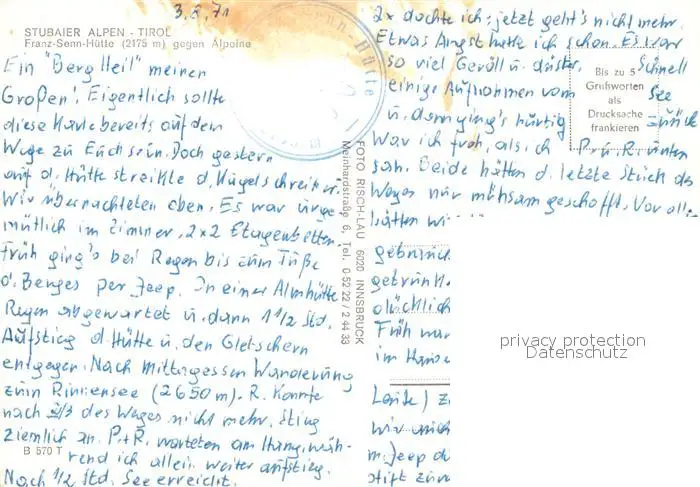 3.8.71
STUBAIER ALPEN - TIROL
Franz-Senn-Hütte (2175 m) gegen Alpeine
Ein "Berg Heil" meinen
Großen! Eigentlich sollte
diese Karte bereits auf dem
Wege zu Euch sein. Doch gestern
auf d. Hütte streikte d. Kugelschreiber.
Wir übernachteten oben. Es war urge-
mütlich im Zimmer, 2x2 Etagenbetten.
Früh ging's bei Regen bis zum Fuße
d. Berges per Jeep. In einer Almhütte
Regen abgewartet u. dann 1 1/2 Std.
Aufstieg d. Hütte u. den Gletschern
entgegen. Nach Mittagessen Wanderung
zum Rinnensee (2650 m). R. konnte
nach 2/3 des Weges nicht mehr. Stieg
ziemlich an. P.+R. warteten am Hang, wäh-
rend ich allein weiter aufstieg.
Nach 1/2 Std. See erreicht.
B 570 T
FOTO RISCH-LAU 6020 INNSBRUCK
Meinhardstraße 6, Tel. 0 52 22 / 2 44 33
2x dachte ich: jetzt geht's nicht mehr.
Etwas Angst hatte ich schon. Es war
so viel Geröll u. düster. Schnell
einige Aufnahmen vom See
u. dann ging's hurtig zurück
War ich froh, als ich P. u. R. unten
sah. Beide hatten d. letzte Stück des
Weges nur mühsam geschafft. Vor alle
hätten wi
Bis zu 5
Grußworten
als
Drucksache
frankieren
gebrauch
getrunk
glücklich
Früh war
im Hause
Leute) z
wir
m. Jeep d
stift zur
privacy protection
Datenschutz